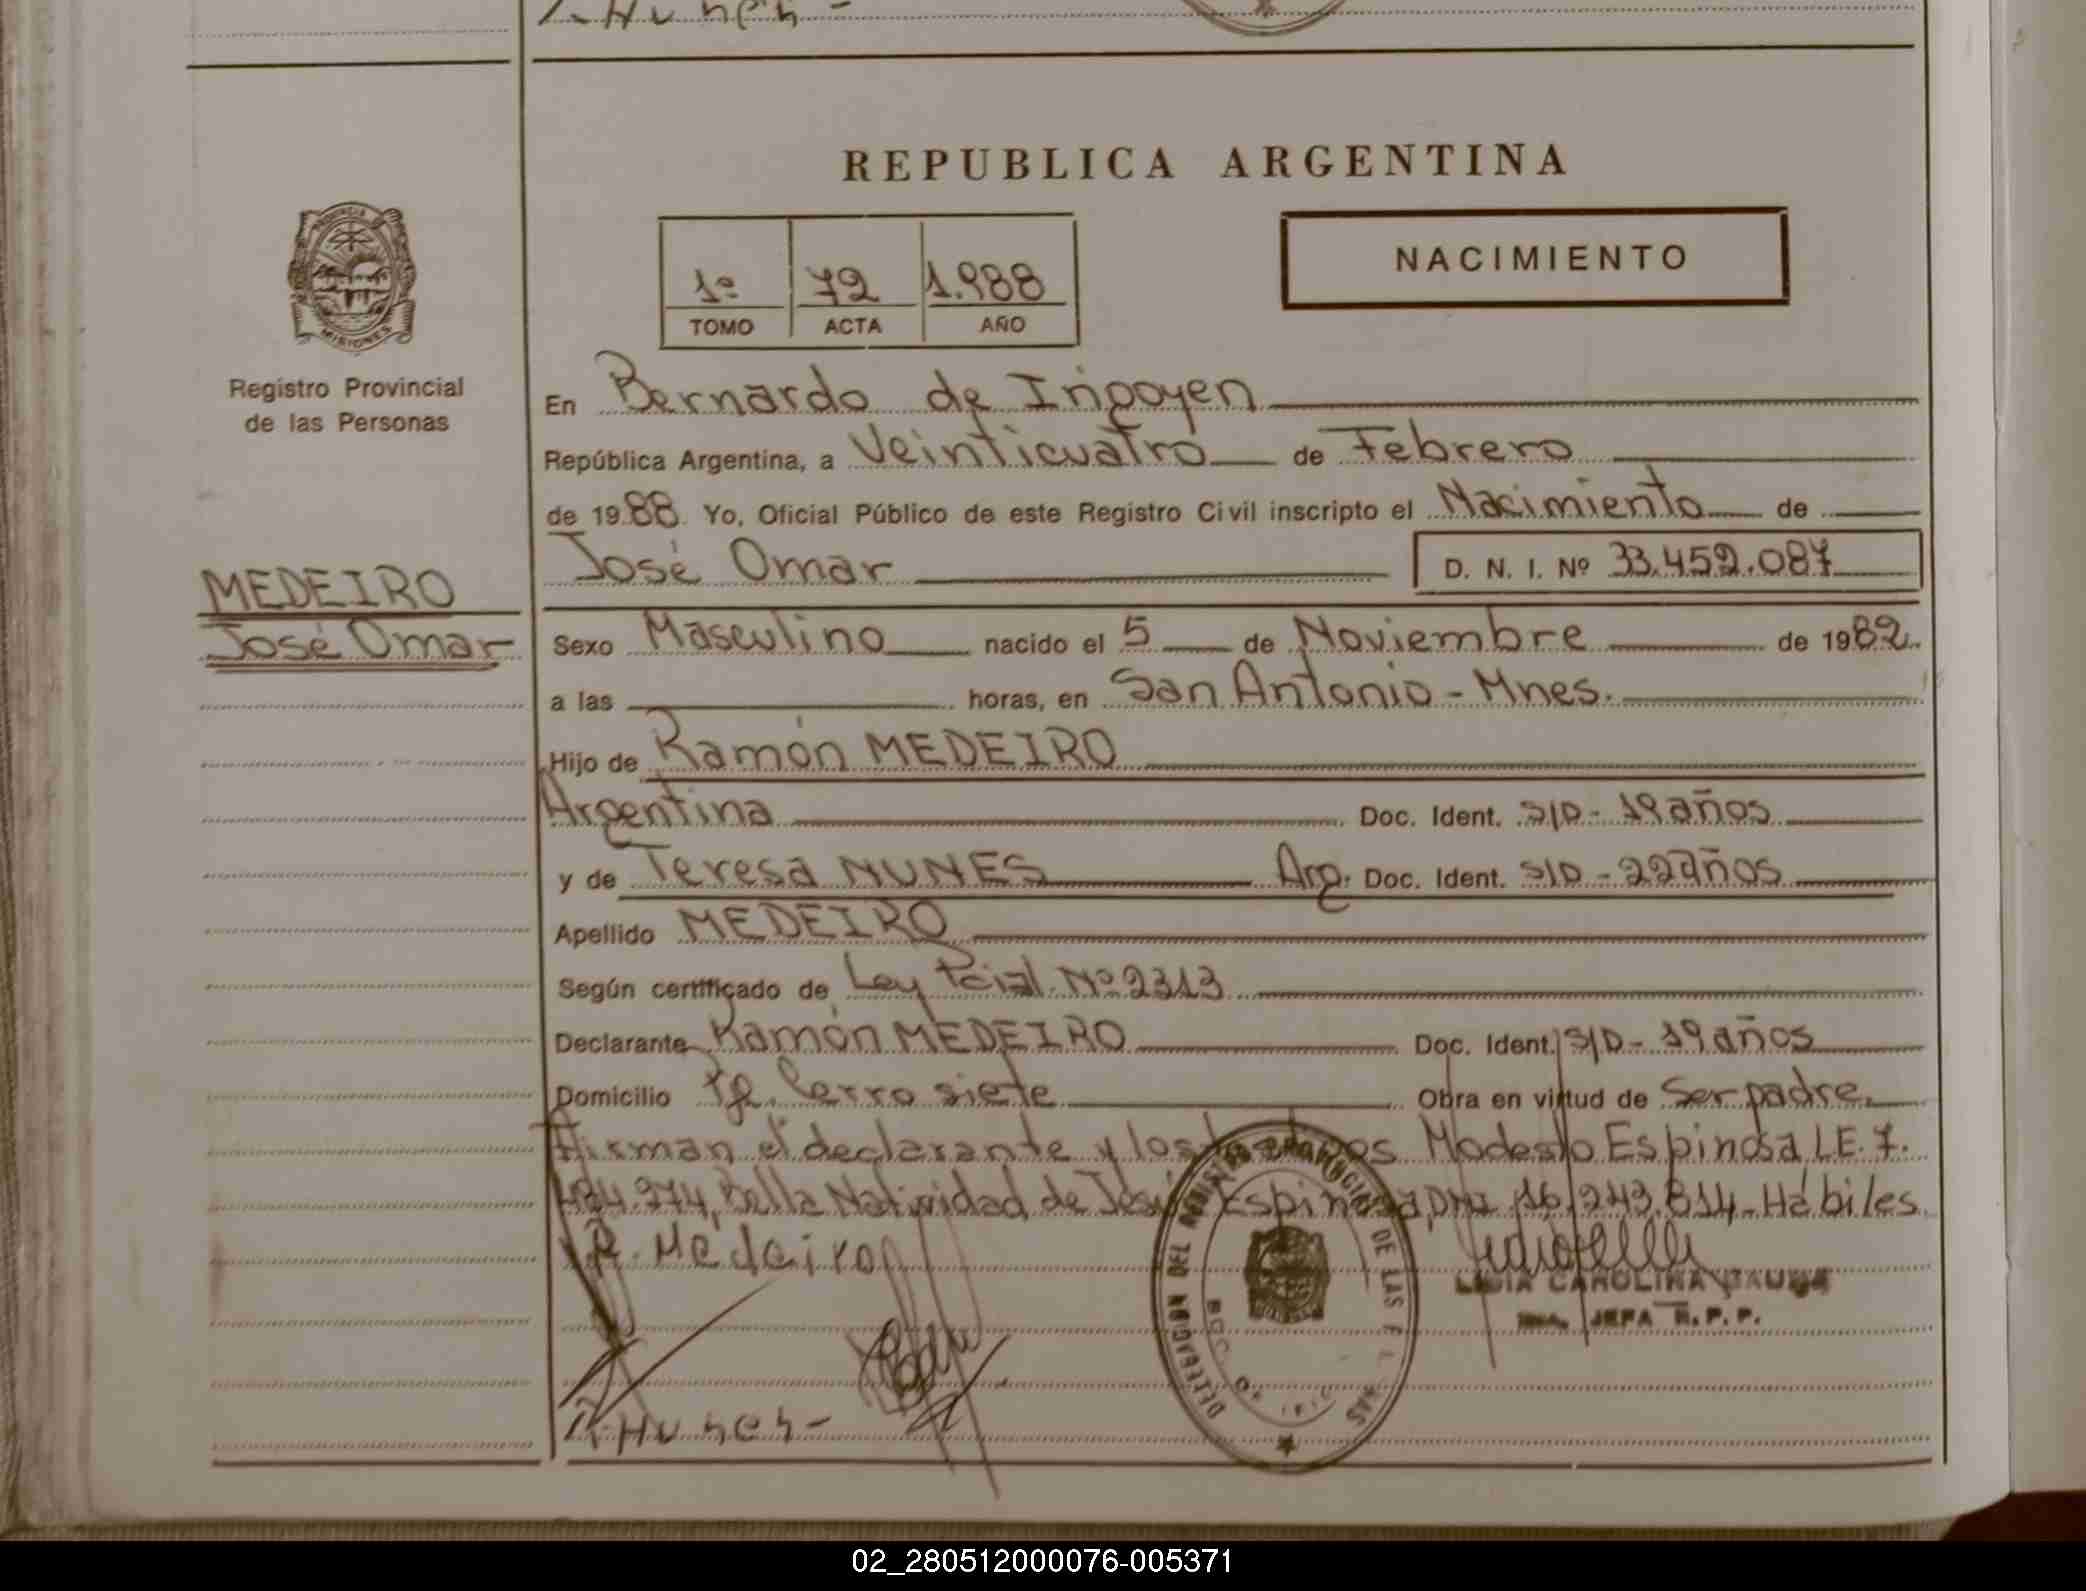 T. Nunes -
REPUBLICA ARGENTINA
1º 72 1.988
TOMO ACTA AÑO
NACIMIENTO
PROVINCIA DE
MISIONES
Registro Provincial
de las Personas
MEDEIRO
José Omar
En Bernardo de Irigoyen
República Argentina, a Veinticuatro de Febrero
de 1988 Yo, Oficial Público de este Registro Civil inscripto el Nacimiento de
José Omar D. N. I. Nº 33.452.087
Sexo Masculino nacido el 5 de Noviembre de 1982.
a las horas, en San Antonio - Mnes.
Hijo de Ramón MEDEIRO
Argentina Doc. Ident. S/D - 19 años
y de Teresa NUNES Arg. Doc. Ident. S/D - 22 años
Apellido MEDEIRO
Según certificado de Ley Pcial. Nº 2313
Declarante Ramón MEDEIRO Doc. Ident. S/D - 19 años
Domicilio Pje. Cerro siete Obra en virtud de Ser padre.
Firman el declarante y los testigos Modesto Espinosa L.E. 7.
274, Bella Natividad de Jesús Espinosa, DNI 16.243.814 - Hábiles
R. Medeiro
LIDIA CAROLINA
JEFA R.P.P.
DELEGACION DEL REGISTRO PROVINCIAL DE LAS
T. Nunes -
02_280512000076-005371